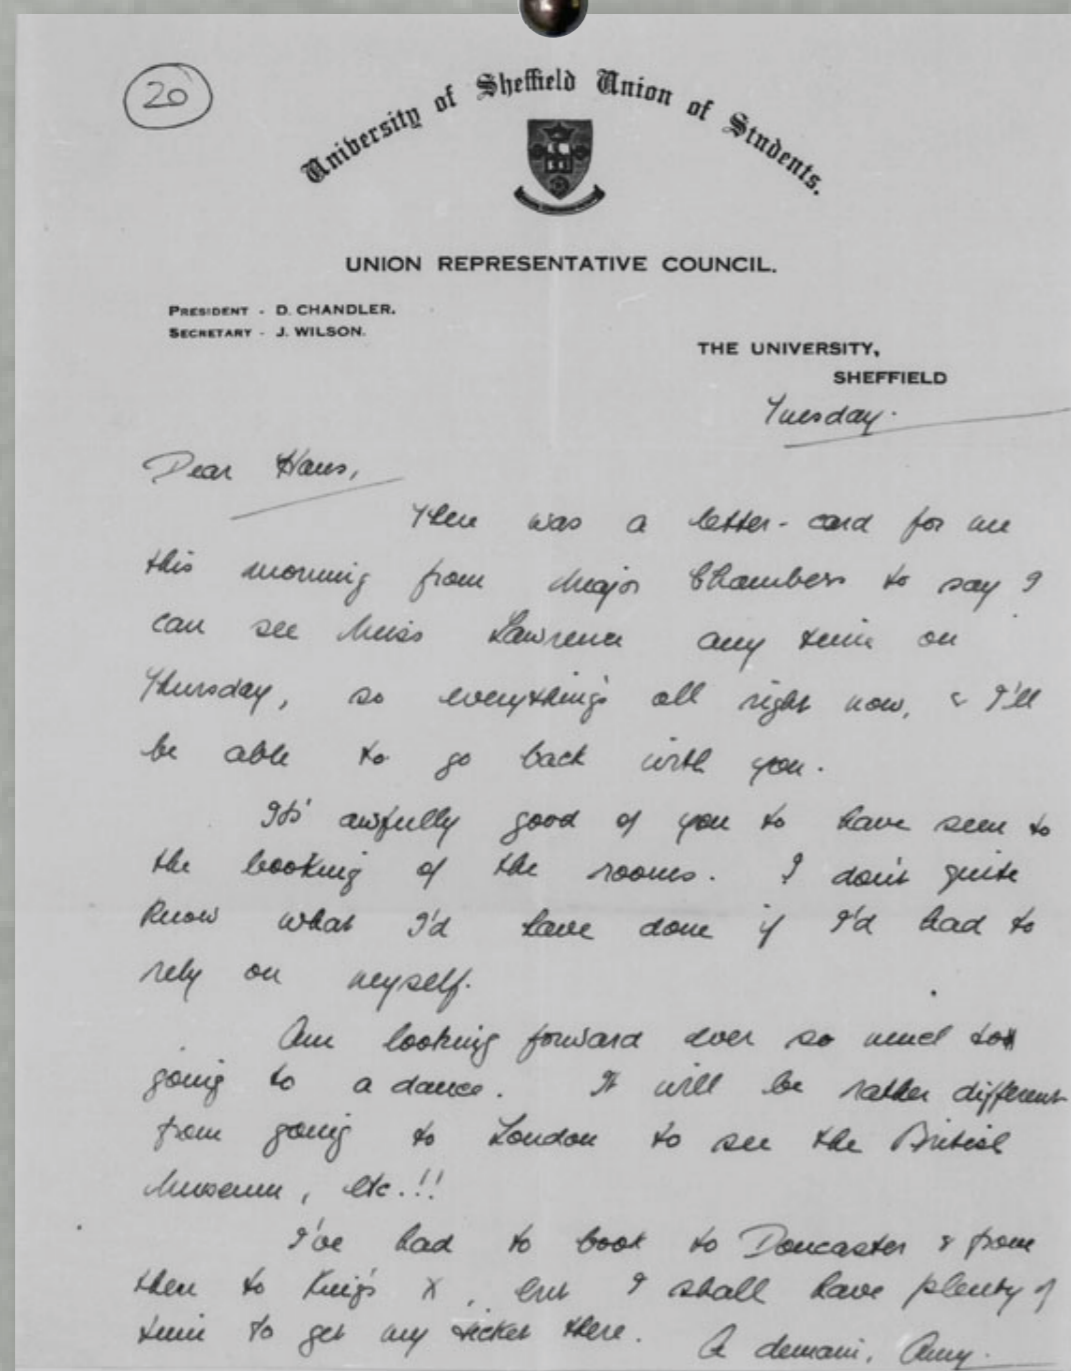 20
University of Sheffield Union of Students.
UNION REPRESENTATIVE COUNCIL.
PRESIDENT - D. CHANDLER.
SECRETARY - J. WILSON.
THE UNIVERSITY,
SHEFFIELD
Tuesday.
Dear Hans,
There was a letter-card for me
this morning from Major Chambers to say I
can see Miss Lawrence any time on
Thursday, so everything's all right now, & I'll
be able to go back with you.
Its' awfully good of you to have seen to
the booking of the rooms. I don't quite
know what I'd have done if I'd had to
rely on myself.
Am looking forward ever so much to
going to a dance. It will be rather different
from going to London to see the British
Museum, etc.!!
I've had to book to Doncaster & from
then to King's X, but I shall have plenty of
time to get my ticket there. A demain, Amy.